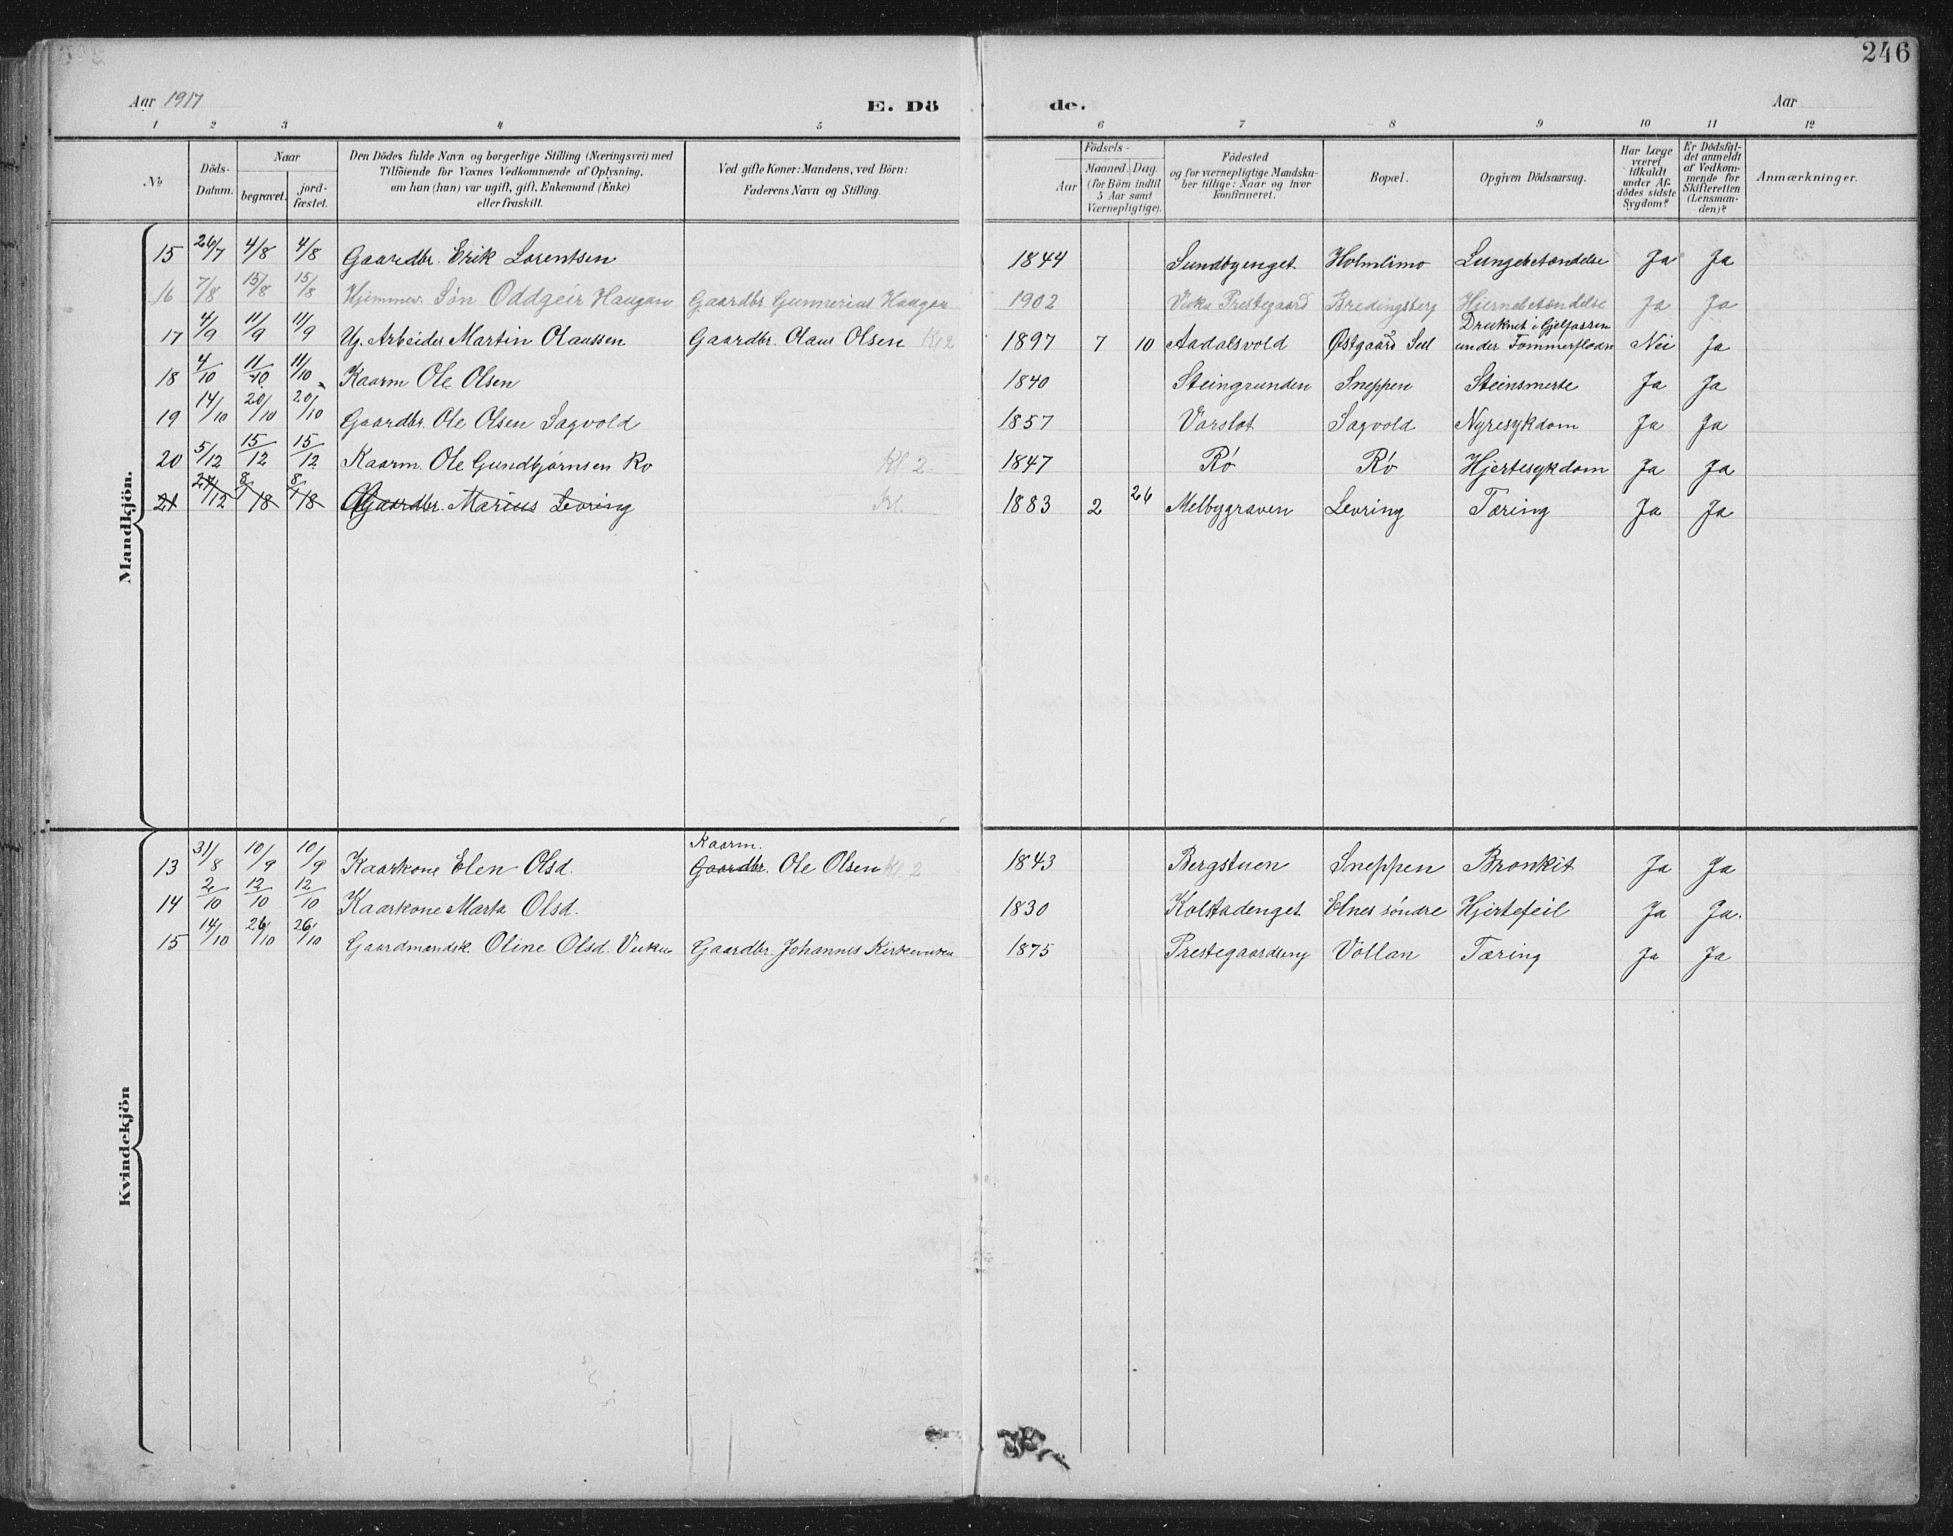 246
Aar 1917 E. Dö de. Aar
1 2 3 4 5 6 7 8 9 10 11 12
No
Döds-Datum.
Naar
begravet.
jord-fæstet.
Den Dödes fulde Navn og borgerlige Stilling (Næringsvei) med
Tilföiende for Voxnes Vedkommende af Oplysning,
om han (hun) var ugift, gift, Enkemand (Enke)
eller fraskilt.
Ved gifte Koner: Mandens, ved Börn:
Faderens Navn og Stilling.
Födsels-
Aar
Maaned. Dag.
(for Börn indtil
5 Aar samt
Værnepligtige).
Födested
og for værnepligtige Mandska-
ber tillige: Naar og hvor
konfirmeret.
Bopæl.
Opgiven Dödsaarsag.
Har Læge
været
tilkaldt
under Af-
dödes sidste
Sygdom?
Er Dödsfal-
det anmeldt
af Vedkom-
mende for
Skifteretten
(Lensman-
den)?
Anmærkninger.
Mandkjön.
15 26/7 4/8 4/8 Gaardbr. Erik Lorentsen 1844 Sundbyenget Holmlimo Lungebetændelse Ja Ja
16 7/8 15/8 15/8 Hjemmev. Søn Oddgeir Haugan Gaardbr. Gunnerius Haugan 1902 Vuku Prestegaard Bredingsberg Hjernebetændelse Ja Ja
17 4/9 11/9 11/9 Ug. Arbeider Martin Olaussen Gaardbr. Olaus Olsen Kl 2 1897 7 10 Aadalsvold Østgaard Sul Druknet i Gjelfossen
under Tømmerflodn Nei Ja
18 4/10 11/10 11/10 Kaarm Ole Olsen 1840 Steingrunden Sneppen Steinsmerte Ja Ja
19 14/10 20/10 20/10 Gaardbr. Ole Olsen Sagvold 1857 Varslot Sagvold Nyresykdom Ja Ja
20 5/12 15/12 15/12 Kaarm. Ole Gundbjørnsen Rø Kl 2. 1847 Rø Rø Hjertesykdom Ja Ja
21 27/12 8/1 18 8/1 18 Gaardbr. Marius Levring Kl. 1883 2 26 Melbygraven Levring Tæring Ja Ja
Kvindekjön
Kaarm.
13 31/8 10/9 10/9 Kaarkone Elen Olsd. Gaardbr. Ole Olsen Kl. 2 1843 Bergstuen Sneppen Bronkit Ja Ja
14 2/10 12/10 12/10 Kaarkone Marta Olsd. 1830 Kolstadenget Elnes søndre Hjertefeil Ja Ja.
15 14/10 26/10 26/10 Gaardmandsk. Oline Olsd. Vuku Gaardbr. Johannes Kirkevuku 1875 Prestegaardseng Vollan Tæring Ja Ja